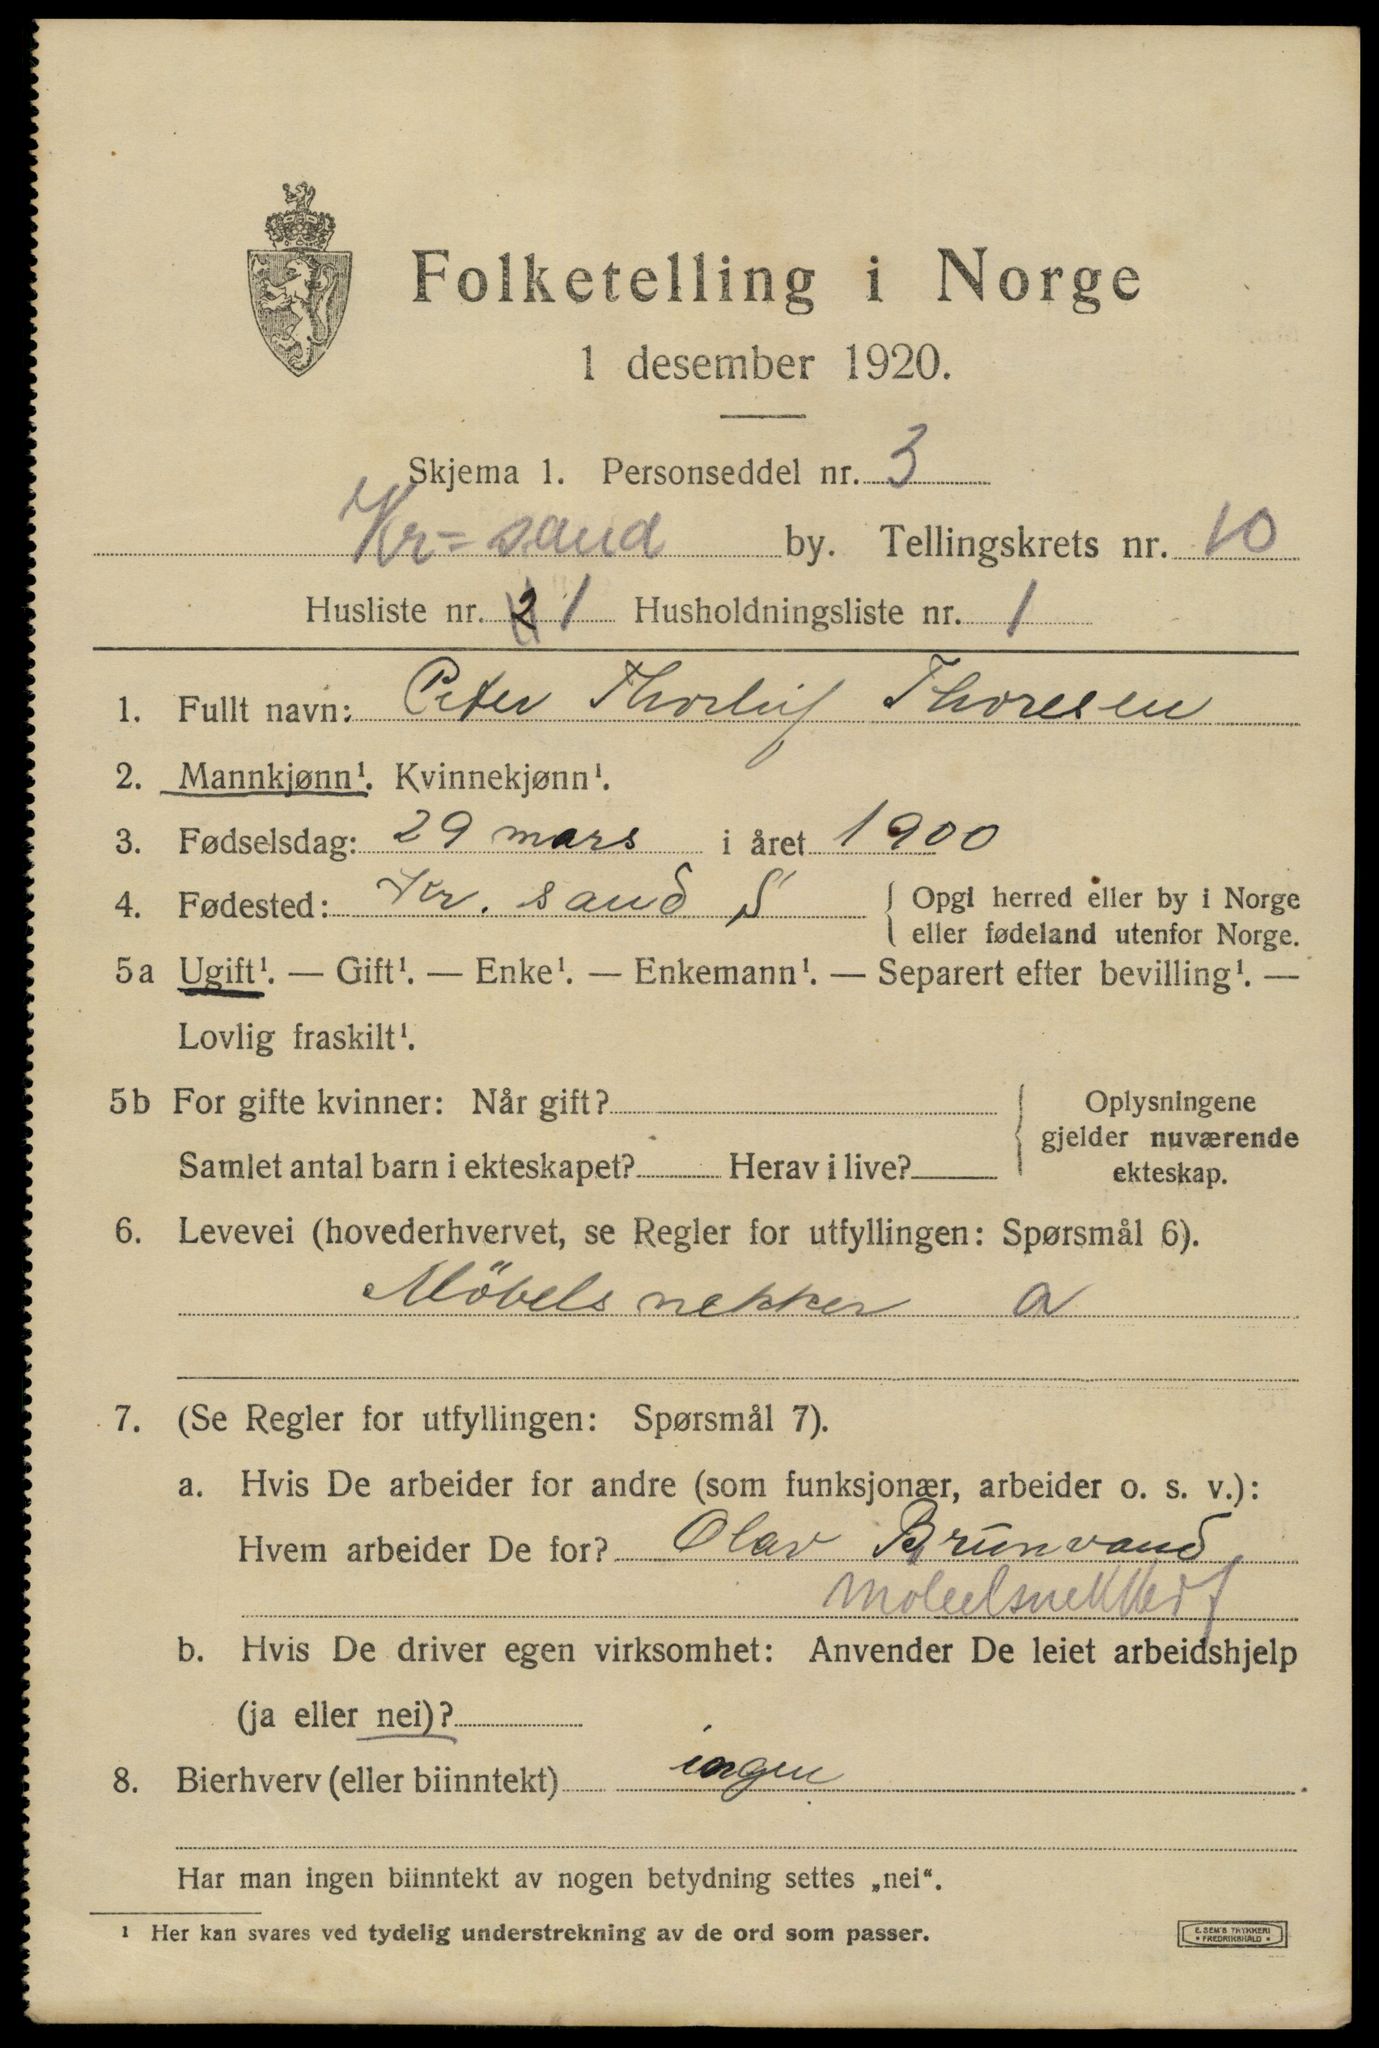 Folketelling i Norge
1 desember 1920.
Skjema 1. Personseddel nr. 3
Kr=sand by. Tellingskrets nr. 10
Husliste nr. 21 Husholdningsliste nr. 1
1. Fullt navn: Peter Thorleif Thoresen
2. Mannkjønn¹. Kvinnekjønn¹.
3. Fødselsdag: 29 mars i året 1900
4. Fødested: Kr. sand S { Opgi herred eller by i Norge
eller fødeland utenfor Norge.
5a Ugift¹. — Gift¹. — Enke¹. — Enkemann¹. — Separert efter bevilling¹. —
Lovlig fraskilt¹.
5b For gifte kvinner: Når gift?
Samlet antal barn i ekteskapet? Herav i live?
Oplysningene
gjelder nuværende
ekteskap.
6. Levevei (hovederhvervet, se Regler for utfyllingen: Spørsmål 6).
Möbelsnekker a
7. (Se Regler for utfyllingen: Spørsmål 7).
a. Hvis De arbeider for andre (som funksjonær, arbeider o. s. v.):
Hvem arbeider De for? Olav Brünvand
b. Hvis De driver egen virksomhet: Anvender De leiet arbeidshjelp
(ja eller nei)?
8. Bierhverv (eller biinntekt) ingen
Har man ingen biinntekt av nogen betydning settes „nei“.
¹ Her kan svares ved tydelig understrekning av de ord som passer.
E. SEM'S TRYKKERI
* FREDRIKSHALD *